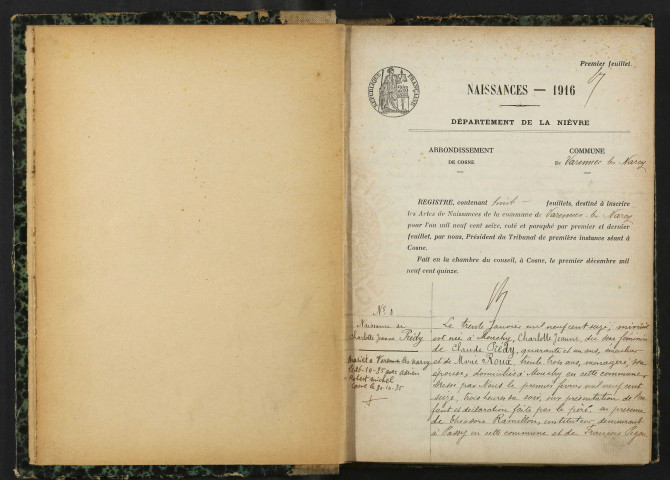 Premier feuillet.
RÉPUBLIQUE FRANÇAISE
NAISSANCES — 1916
DÉPARTEMENT DE LA NIÈVRE
ARRONDISSEMENT
DE COSNE
COMMUNE
DE Varennes les Narcy
REGISTRE, contenant huit feuillets, destiné à inscrire
les Actes de Naissances de la commune de Varennes-les Narcy
pour l'an mil neuf cent seize, coté et paraphé par premier et dernier
feuillet, par nous, Président du Tribunal de première instance séant à
Cosne.
Fait en la chambre du conseil, à Cosne, le premier décembre mil
neuf cent quinze.
N° 1
Naissance de
Charlotte Jeanne Piédy
Mariée à Varennes les narcy
le 26-10-35 avec
Robert Michel
30-10-35
Le trente Janvier mil neuf cent seize,
est née à Mouchy, Charlotte Jeanne, du sexe féminin
de Claude Piédy, quarante et un ans,
et de Marie Roux, trente trois ans, son
épouse, domiciliés à Mouchy en cette commune.
Dressé par Nous le premier février mil neuf cent
seize, trois heures du soir, sur présentation de l'en
fant et déclaration faite par le père, en présence
de Théodore Ramillon, instituteur, demeurant
à Passy en cette commune et de François